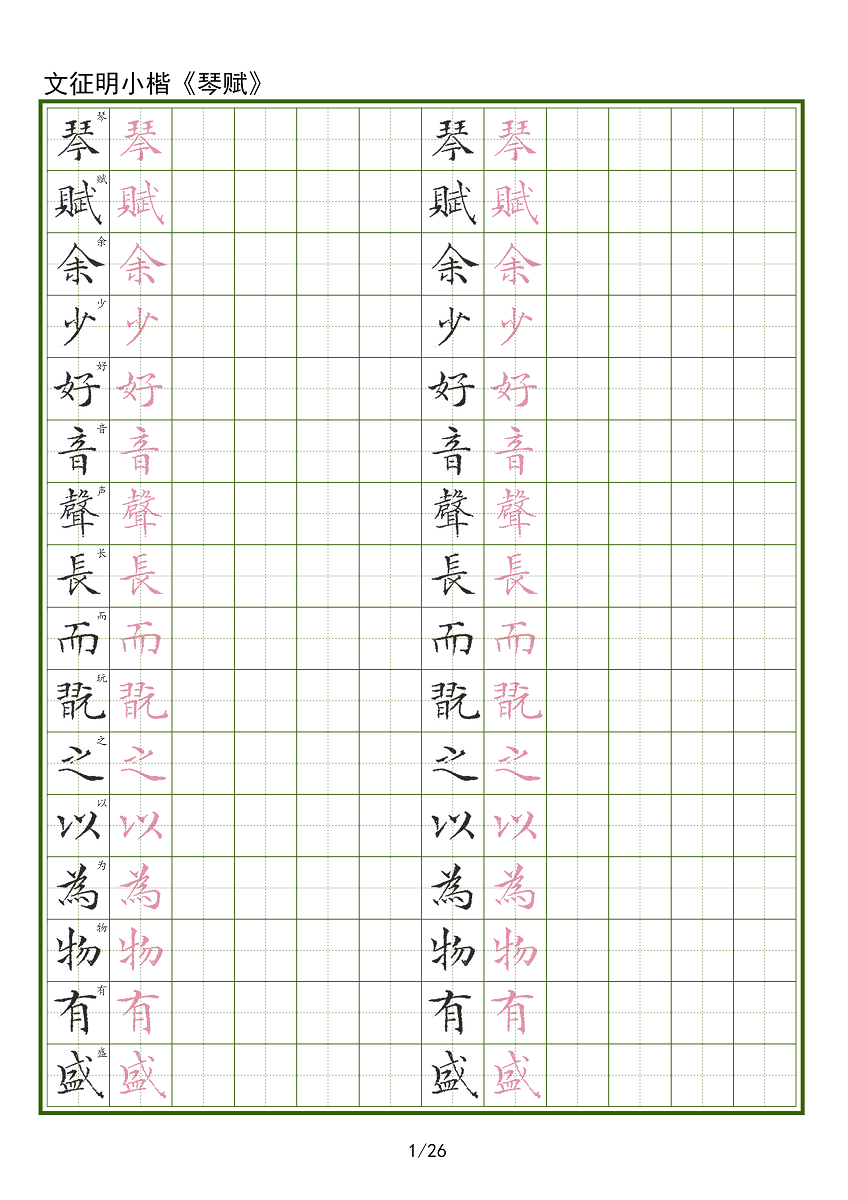 文征明小楷《琴赋》
琴 琴 琴 琴 琴
賦 赋 賦 賦 賦
余 余 余 余 余
少 少 少 少 少
好 好 好 好 好
音 音 音 音 音
聲 声 聲 聲 聲
長 长 長 長 長
而 而 而 而 而
翫 玩 翫 翫 翫
之 之 之 之 之
以 以 以 以 以
為 为 為 為 為
物 物 物 物 物
有 有 有 有 有
盛 盛 盛 盛 盛
1/26